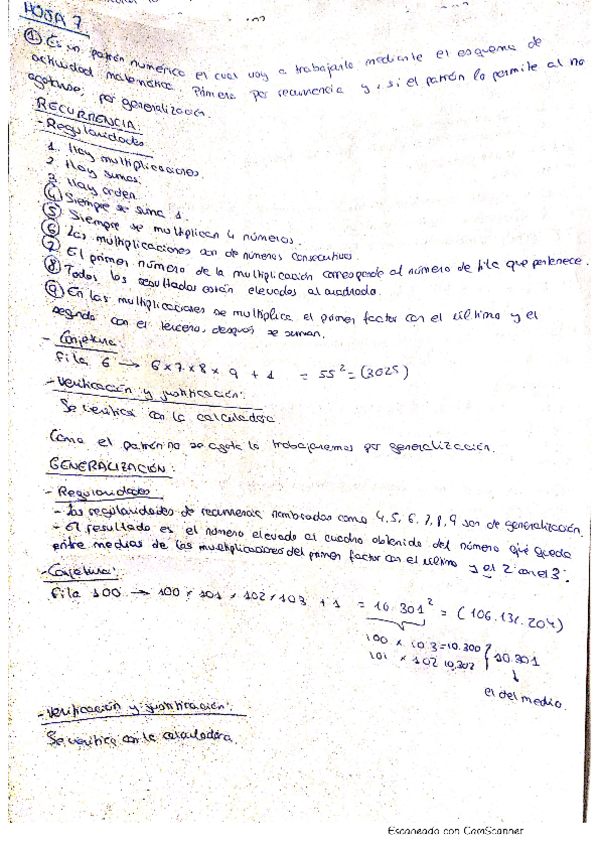 HOJA 7
① Es un patrón numérico el cual voy a trabajarlo mediante el esquema de
actividad matemática. Primero por recurrencia y, si el patrón lo permite al no
agotarse, por generalización.
RECURRENCIA:
- Regularidades
1. Hay multiplicaciones.
2. Hay sumas.
3. Hay orden.
④ Siempre se suma 1.
⑤ Siempre se multiplican 4 números.
⑥ Las multiplicaciones son de números consecutivos.
⑦ El primer número de la multiplicación corresponde al número de fila que pertenece.
⑧ Todos los resultados están elevados al cuadrado.
⑨ En las multiplicaciones se multiplica el primer factor con el último y el
segundo con el tercero, después se suman.
- Conjetura:
Fila 6 → 6 x 7 x 8 x 9 + 1 = 55² = (3025)
- Verificación y justificación:
Se verifica con la calculadora.
Como el patrón no se agota lo trabajaremos por generalización.
GENERALIZACIÓN:
- Regularidades
- Las regularidades de recurrencia nombradas como 4, 5, 6, 7, 8, 9 son de generalización.
- El resultado es el número elevado al cuadro obtenido del número que queda
entre medias de las multiplicaciones del primer factor con el último y el 2 con el 3.
- Conjetura:
Fila 100 → 100 x 101 x 102 x 103 + 1 = 10.301² = (106.131.204)
100 x 103 = 10.300
101 x 102 10.302
10.301
↓
el del medio.
- Verificación y justificación:
Se verifica con la calculadora.
Escaneado con CamScanner